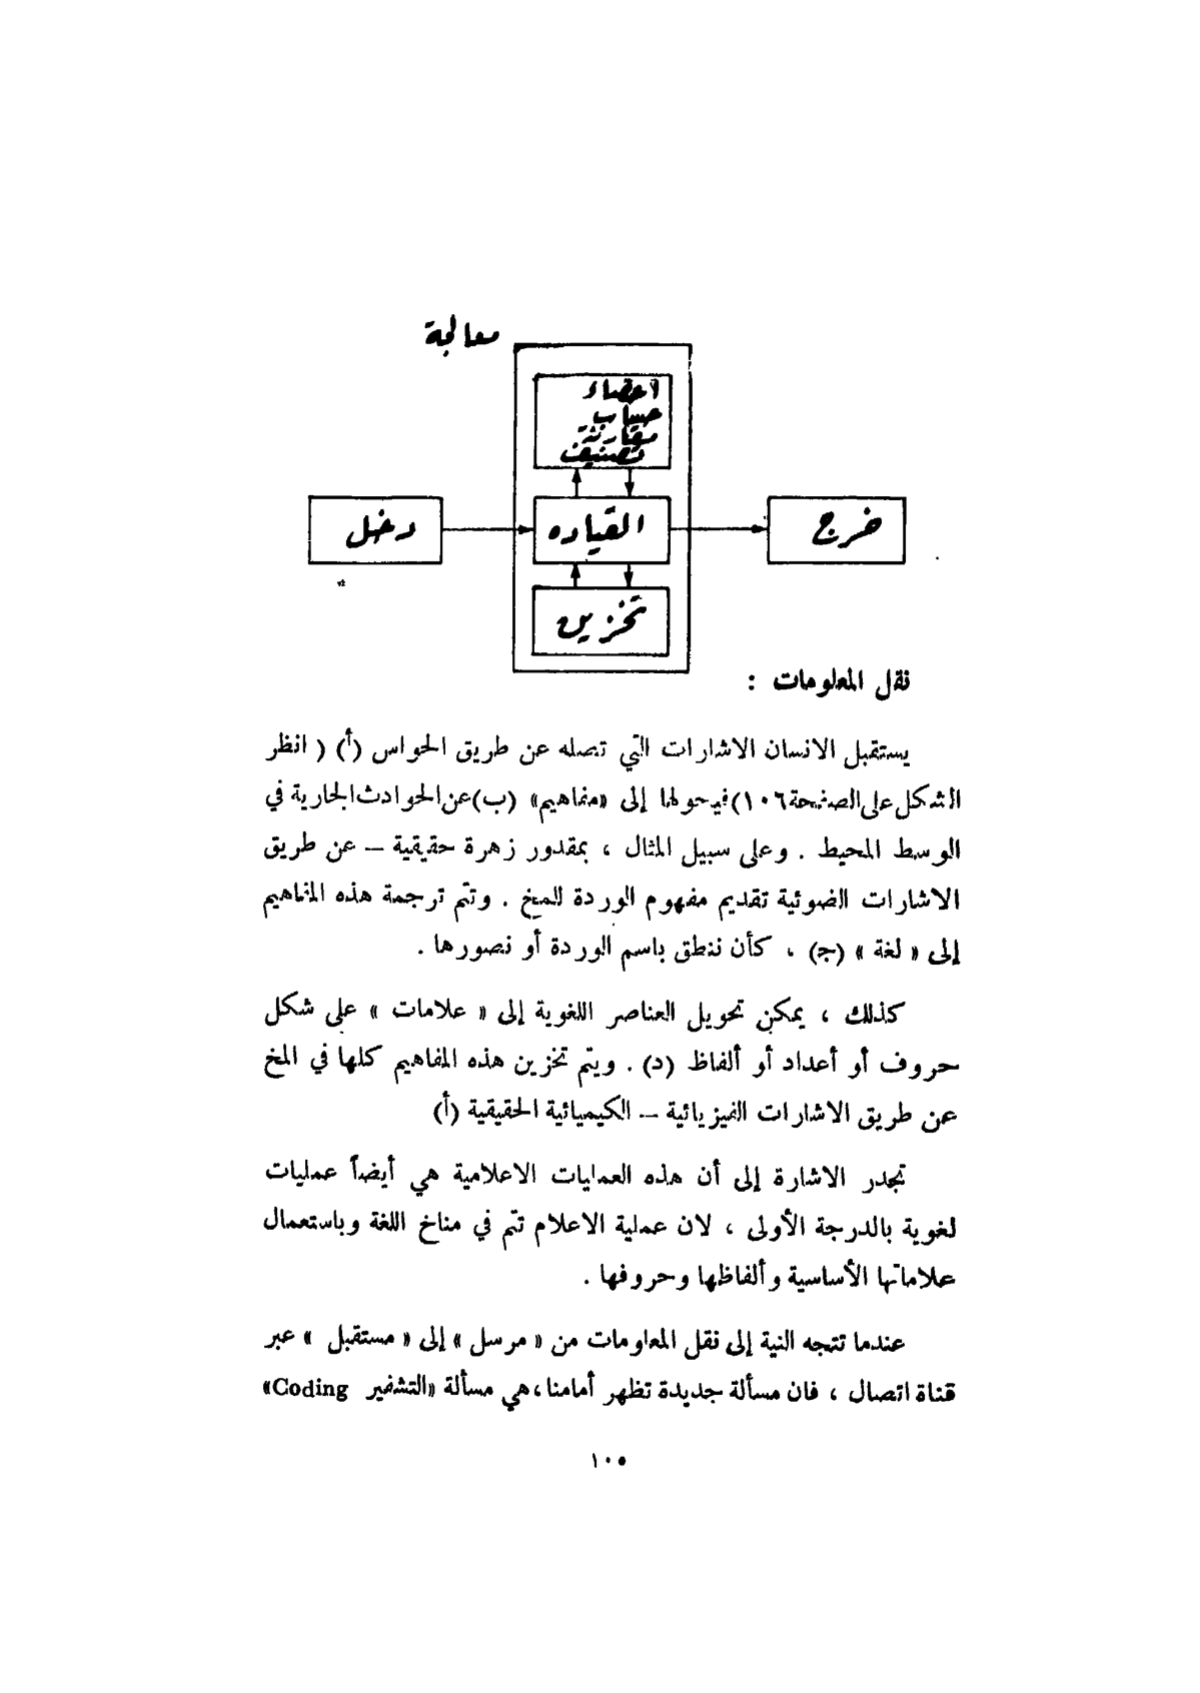 معالجة
أعضاء
حساب
مقارنة
تصنيف
دخل
القياده
خرج
تخزين
نقل المعلومات :
يستقبل الانسان الاشارات التي تصله عن طريق الحواس (أ) ( انظر
الشكل على الصفحة ١٠٦) فيحولها إلى «مفاهيم» (ب) عن الحوادث الجارية في
الوسط المحيط . وعلى سبيل المثال ، بمقدور زهرة حقيقية – عن طريق
الاشارات الضوئية تقديم مفهوم الوردة للمخ . وتتم ترجمة هذه المفاهيم
إلى « لغة » (ج) ، كأن ننطق باسم الوردة أو نصورها .
كذلك ، يمكن تحويل العناصر اللغوية إلى « علامات » على شكل
حروف أو أعداد أو ألفاظ (د) . ويتم تخزين هذه المفاهيم كلها في المخ
عن طريق الاشارات الفيزيائية – الكيميائية الحقيقية (أ)
تجدر الاشارة إلى أن هذه العمليات الاعلامية هي أيضاً عمليات
لغوية بالدرجة الأولى ، لان عملية الاعلام تتم في مناخ اللغة وباستعمال
علاماتها الأساسية وألفاظها وحروفها .
عندما تتجه النية إلى نقل المعلومات من « مرسل » إلى « مستقبل » عبر
قناة اتصال ، فان مسألة جديدة تظهر أمامنا، هي مسألة «التشفير Coding»
١٠٥